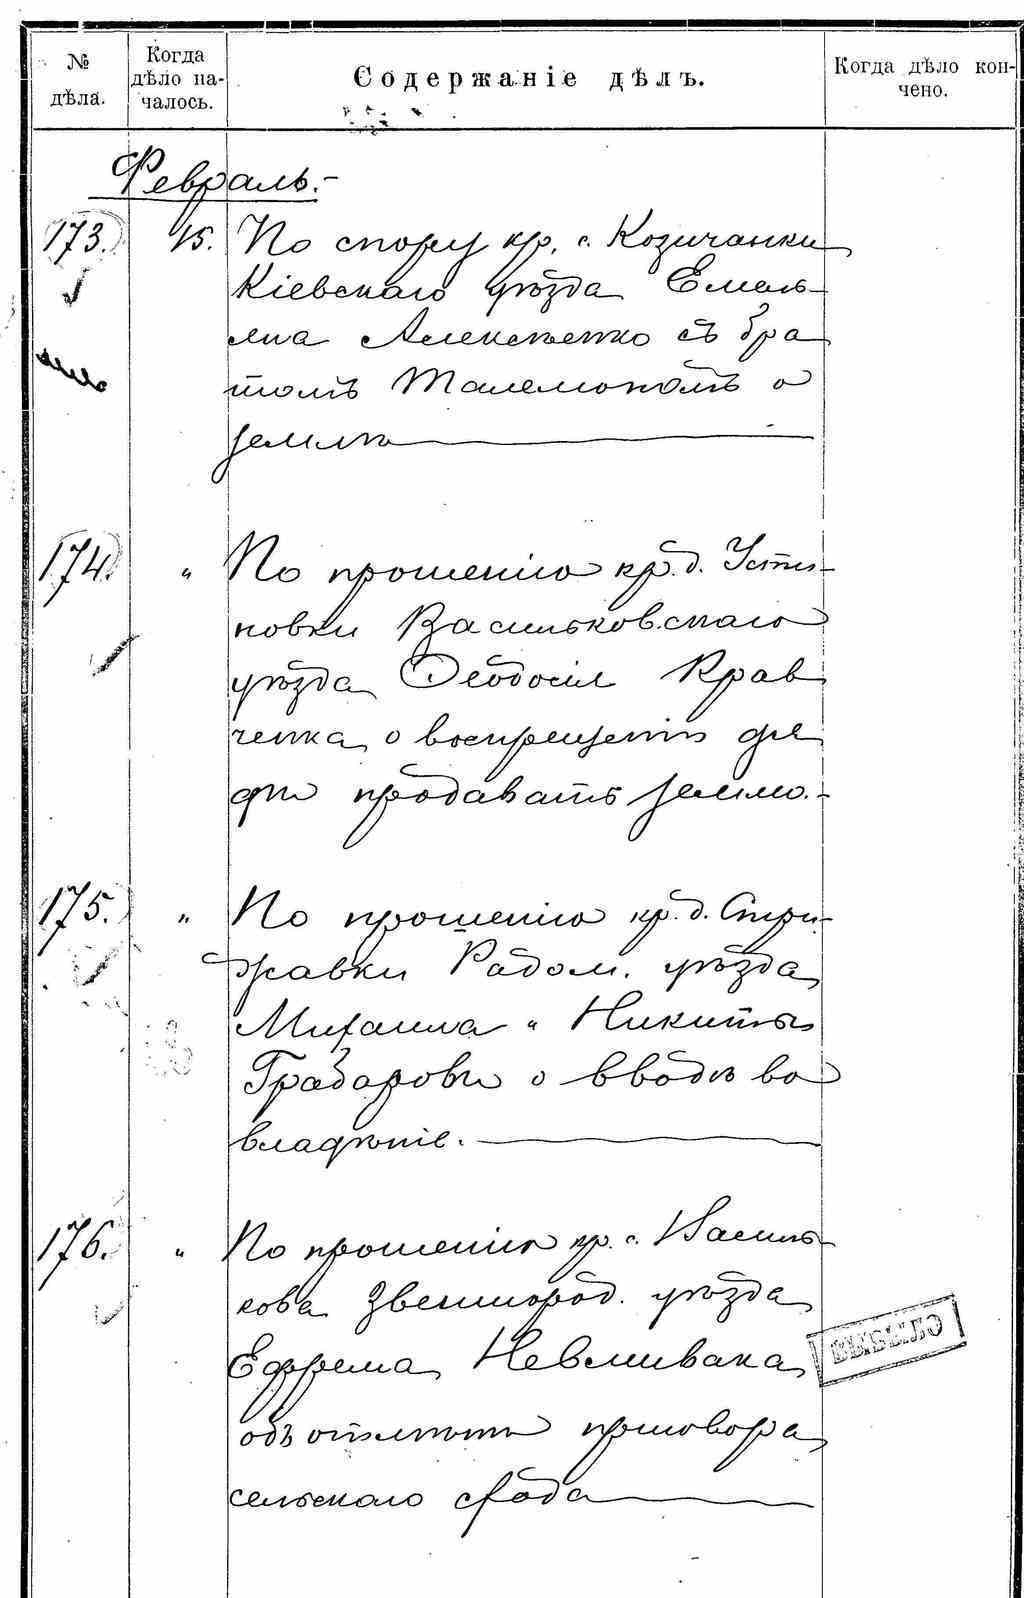 № дѣла.
Когда дѣло на-
чалось.
Содержаніе дѣлъ.
Когда дѣло кон-
чено.
Февраль.-
173. 15. По спору кр. с. Козичанки
Кіевскаго уѣзда Емель-
яна Алексѣенко съ бра
томъ Талемономъ о
землѣ
174. " По прошенію кр. д. Усти-
новки Васильковскаго
уѣзда Ѳеодосія Крав
ченка о воспрещеніи дя
дѣ продавать землю.-
175. " По прошенію кр. д. Стри-
жавки Радом. уѣзда
Михаила и Никиты
Грабаровы о вводѣ во
владѣніе.
176. " По прошенію кр. с. Василь-
кова Звенигород. уѣзда
Ефрема Невмивака
объ отмѣнѣ приговора
сельскаго схода